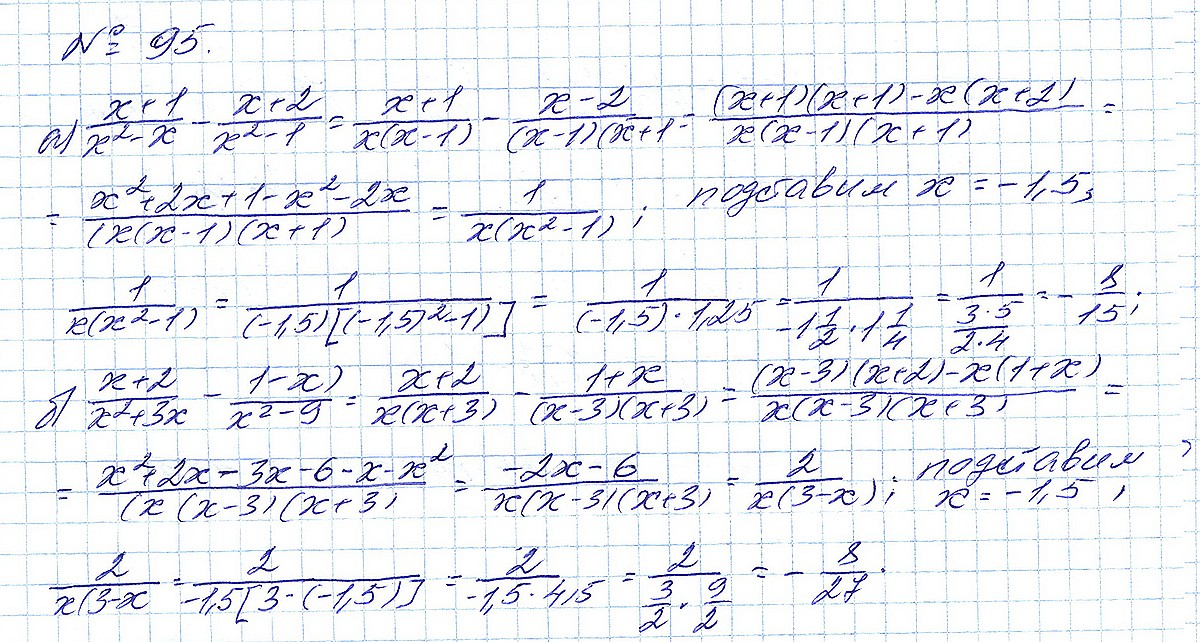 № 95.
а) (x+1)/(x²-x) - (x+2)/(x²-1) = (x+1)/(x(x-1)) - (x-2)/((x-1)(x+1) = ((x+1)(x+1)-x(x+2))/(x(x-1)(x+1)) =
= (x²+2x+1-x²-2x)/((x(x-1)(x+1)) = 1/(x(x²-1)); подставим x = -1,5;
1/(x(x²-1)) = 1/((-1,5)[(-1,5)²-1)] = 1/((-1,5)·1,25 = 1/(-1 1/2 · 1 1/4) = 1/((3·5)/(2·4)) = - 8/15;
б) (x+2)/(x²+3x) - (1-x)/(x²-9) = (x+2)/(x(x+3)) - (1+x)/((x-3)(x+3)) = ((x-3)(x+2)-x(1+x))/(x(x-3)(x+3)) =
= (x²+2x-3x-6-x-x²)/((x(x-3)(x+3)) = (-2x-6)/(x(x-3)(x+3)) = 2/(x(3-x)); подставим x = -1,5;
2/(x(3-x) = 2/(-1,5[3-(-1,5)]) = 2/(-1,5·4,5) = 2/(3/2 · 9/2) = - 8/27.